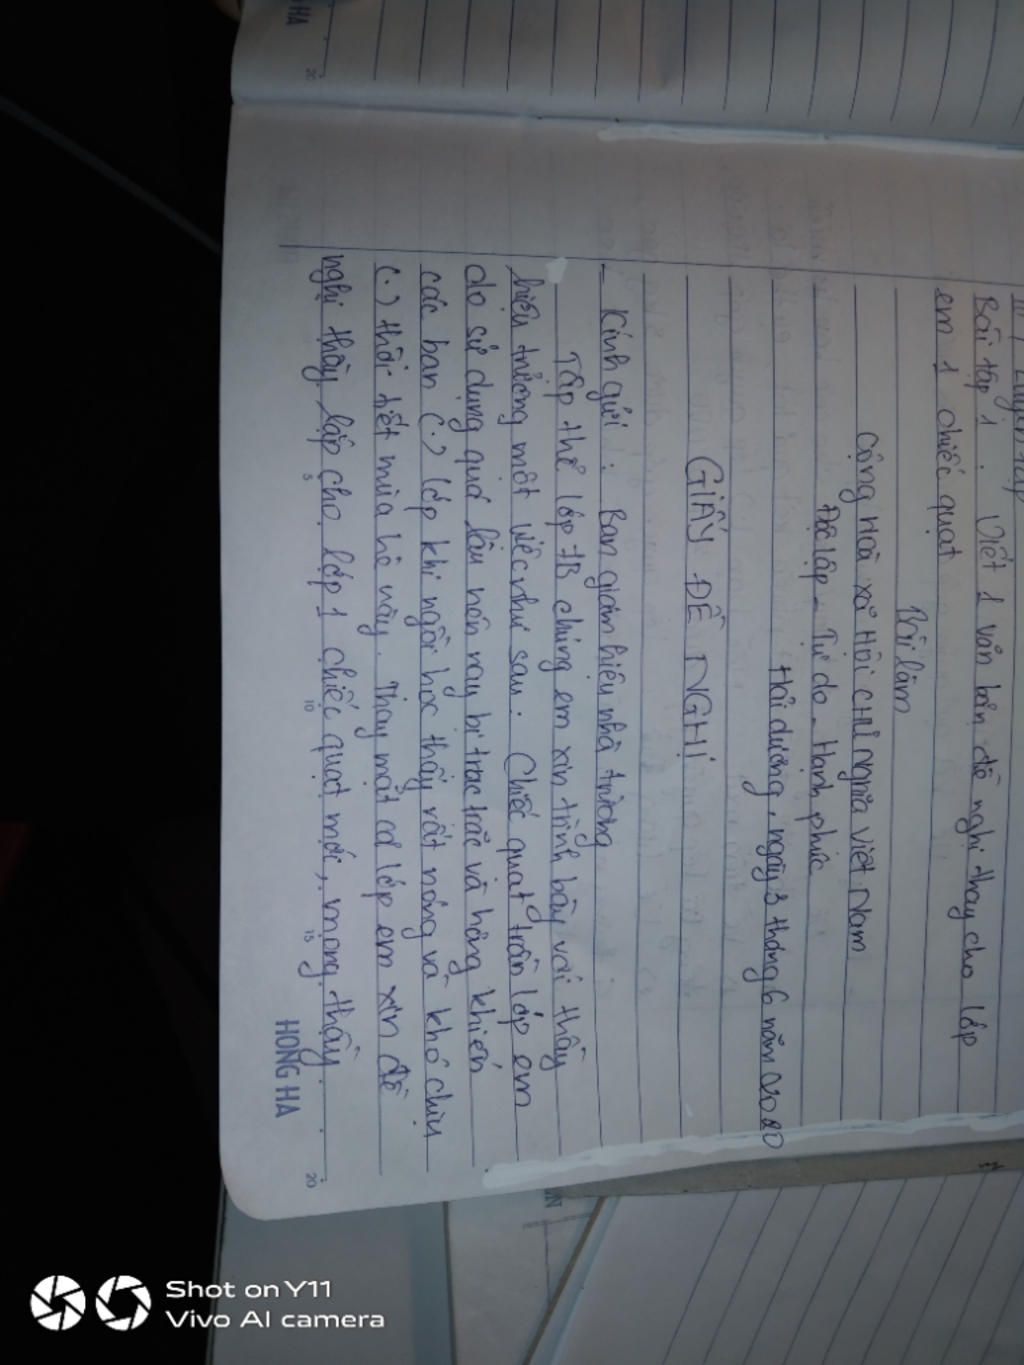 III / Luyện tập
Bài tập 1 : Viết 1 văn bản đề nghị thay cho lớp
em 1 chiếc quạt
Bài làm
Cộng Hoà xã Hội chủ nghĩa Việt Nam
Độc lập - Tự do - Hạnh phúc
Hải dương, ngày 3 tháng 6 năm 2020
GIẤY ĐỀ NGHỊ
- Kính gửi : Ban giám hiệu nhà trường
Tập thể lớp 7B chúng em xin trình bày với thầy
hiệu trưởng một việc như sau : Chiếc quạt trần lớp em
do sử dụng quá lâu nên nay bị trục trặc và hỏng khiến
các bạn (.) lớp khi ngồi học thấy rất nóng và khó chịu
(.) thời tiết mùa hè này. Thay mặt cả lớp em xin đề
nghị thầy lắp cho lớp 1 chiếc quạt mới, mong thầy
5 10 15 20
HONG HA
HA
20
Shot on Y11
Vivo AI camera